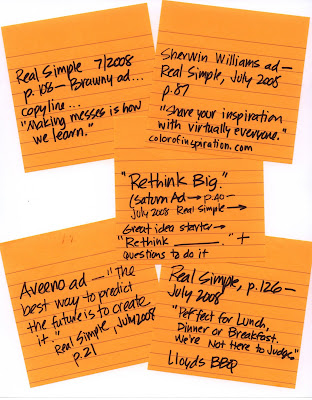 Real Simple 7/2008
p. 108 – Brawny ad...
copyline...
"Making messes is how
we learn."
Sherwin Williams ad –
Real Simple, July 2008
p. 87
"Share your inspiration
with virtually everyone."
colorofinspiration.com
"Rethink Big."
(Saturn Ad → p.40 –
July 2008 Real Simple →
Great idea starter →
"Rethink ______." +
questions to do it
Aveeno ad – "The
best way to predict
the future is to create
it."
Real Simple, July 2008
p. 21
Real Simple, p. 126 –
July 2008
"Perfect for Lunch,
Dinner or Breakfast.
We're Not Here to Judge"
Lloyds BBQ